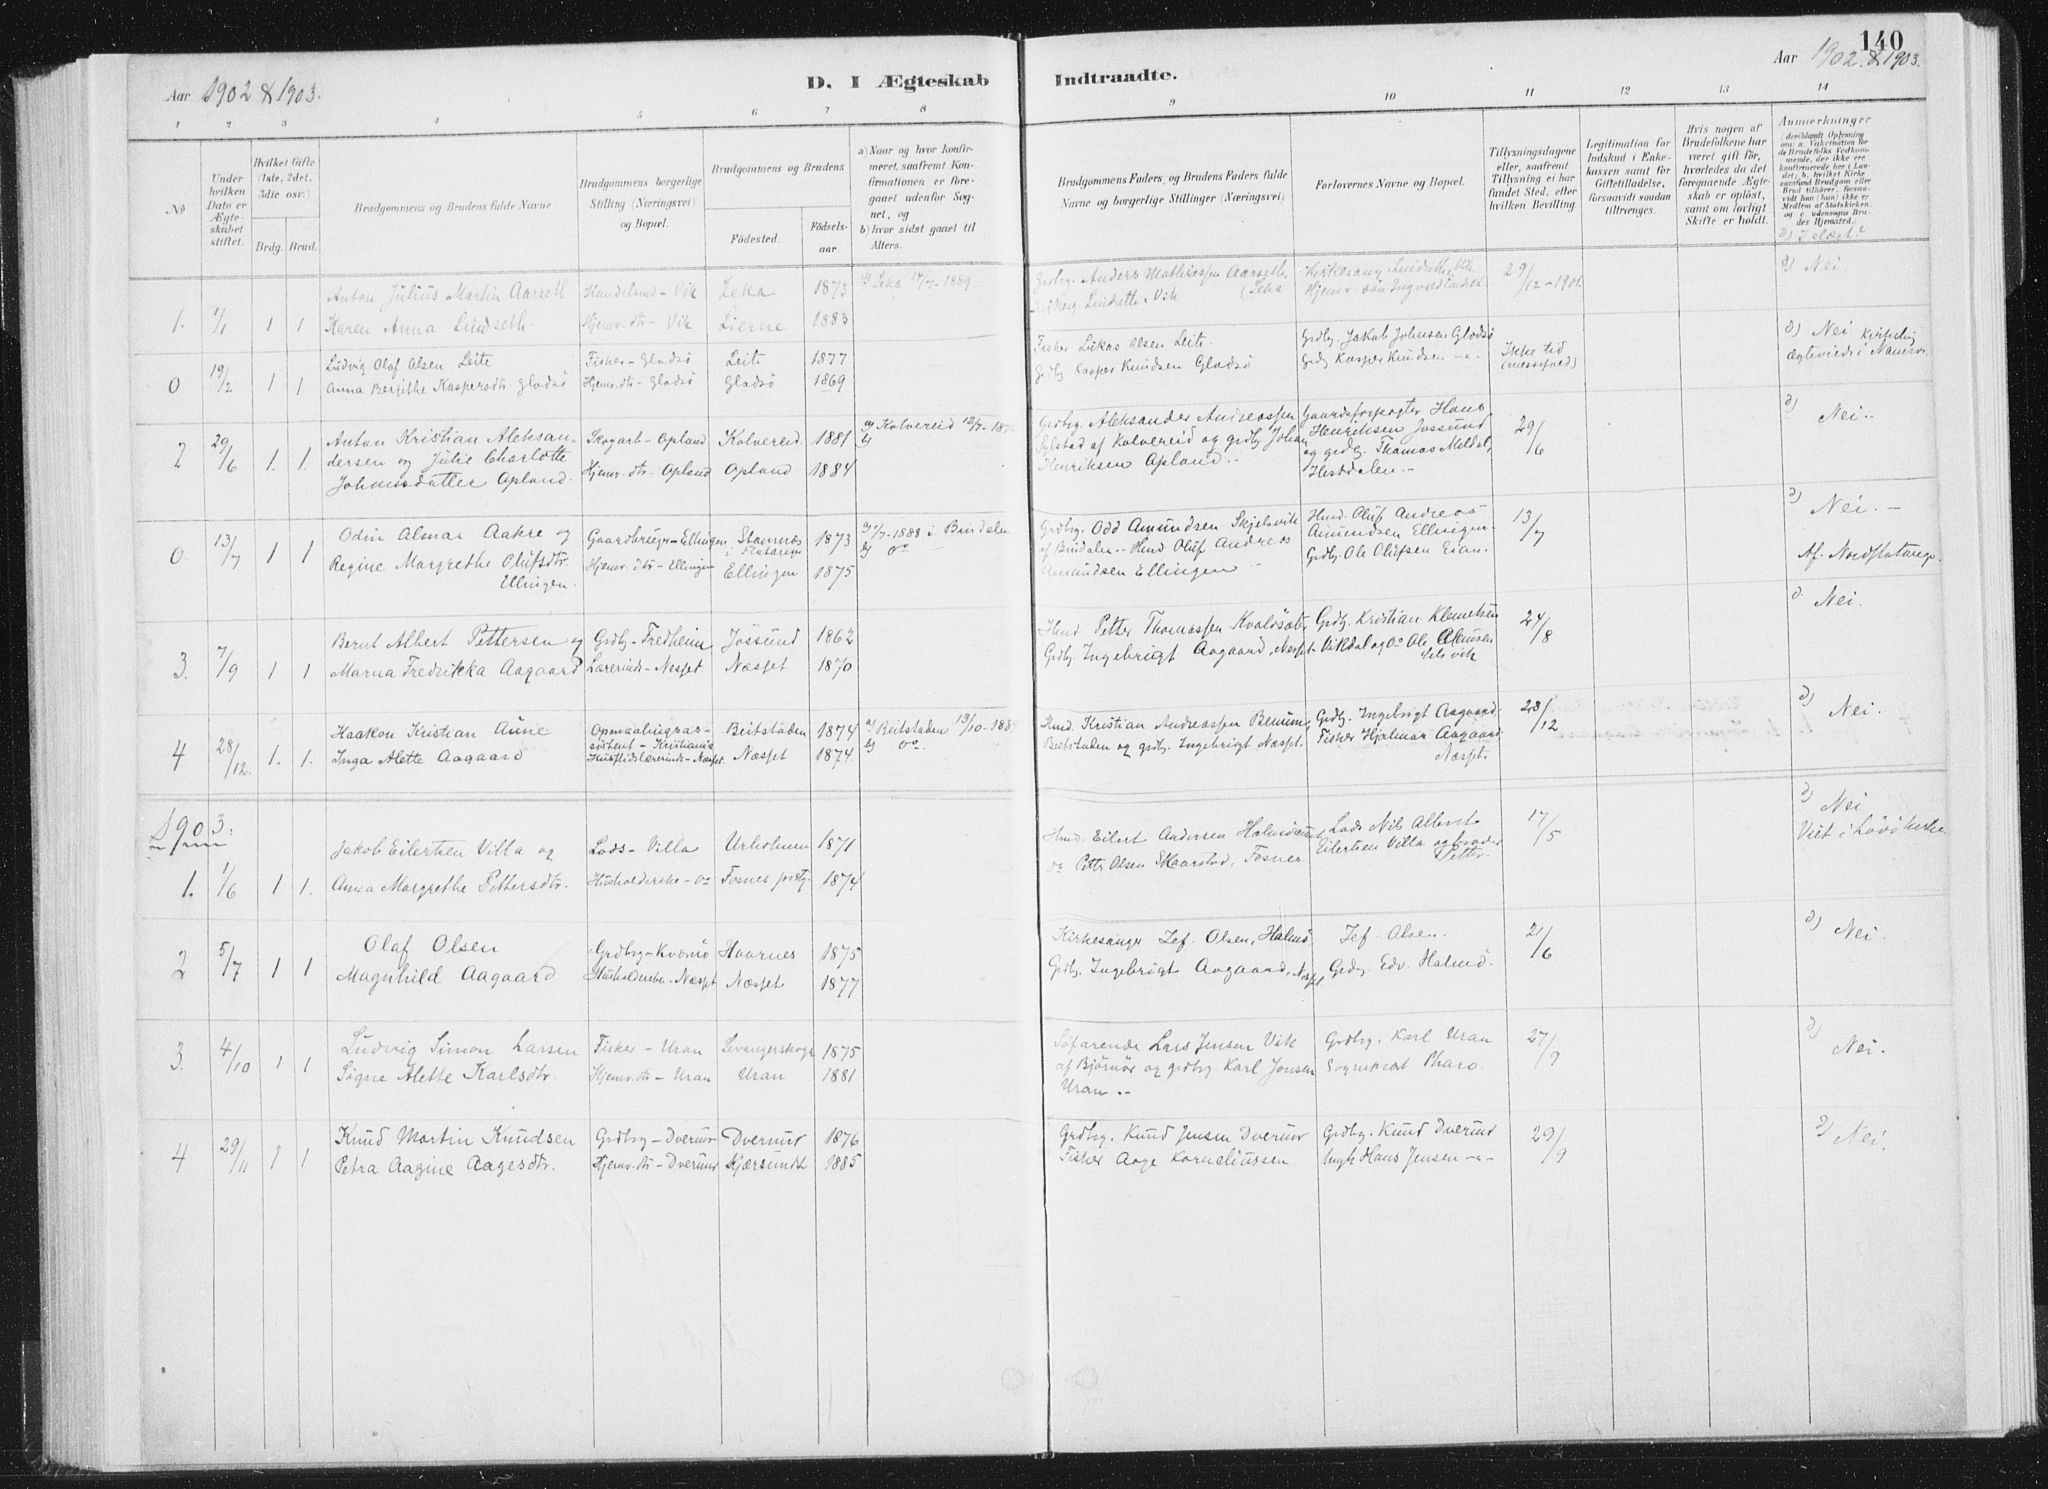 Aar 1902 & 1903.
D. I Ægteskab Indtraadte.
140
Aar 1902 & 1903.
1 2 3 4 5 6 7 8 9 10 11 12 13 14
No
Under hvilken Dato er Ægteskabet stiftet.
Hvilket Gifte (1ste, 2det, 3die osv.)
Brdg. Brud.
Brudgommens og Brudens fulde Navne
Brudgommens borgerlige Stilling (Næringsvei) og Bopæl.
Brudgommens og Brudens
Fødested.
Fødselsaar.
a) Naar og hvor konfirmeret, saafremt Konfirmationen er foregaaet udenfor Sognet, og
b) hvor sidst gaaet til Alters.
Brudgommens Faders, og Brudens Faders fulde Navne og borgerlige Stillinger (Næringsvei)
Forlovernes Navne og Bopæl.
Tillysningsdagene eller, saafremt Tillysning ei har fundet Sted, efter hvilken Bevilling.
Legitimation for Indskud i Enkekassen samt for Giftetilladelse, forsaavidt saadan tiltrænges.
Hvis nogen af Brudefolkene har været gift før, hvorledes da det foregaaende Ægteskab er opløst, samt om lovligt Skifte er holdt.
Anmerkninger
(deriblandt Oplysning om: a. Vaccination for de Brudefolks Vedkommende, der ikke ere konfirmerede her i Landet; b. hvilket Kirkesamfund Brudgom eller Brud tilhører, forsaavidt han (hun) ikke er Medlem af Statskirken, og c. udensogns Brudes Hjemsted.)
1. 1/1 1 1
Anton Julius Martin Aarseth
Karen Anna Lindseth.
Handelsmd - Vik
Hjemv. dtr - Vik
Leka 1873
Lierne 1883
a) Leka 14/7-1889
Grdbrg. Anders Mathiassen Aarseth, (Leka
Lindseth, Vik
29/12-1901.
Nei.
0 19/2 1 1
Ludvig Olaf Olsen Leite
Anna Bergithe Kaspersdtr. Gladsø
Fisker - Gladsø
Hjemv. dtr - Gladsø
Leite 1877
Gladsø 1869
Fisker Lukas Olsen Leite.
Grdbg Kasper Knudsen Gladsø
Grdbg. Jakob Johnsen Gladsø
Grdbg Kasper Knudsen -"-
Ikke tid
d) Nei kirkelig
ægteviede i Namsos
2 29/6 1. 1.
Anton Kristian Aleksandersen og Julie Charlotte Johansdatter Opland.
Skogarb - Opland
Hjemv. dtr - Opland
Kolvereid 1881
Opland 1884
a) Kolvereid
Grdbg. Aleksander Andreassen
Sylstad af Kolvereid og grdbg. Johan
Henriksen Opland
Gaardsforpagter Hans
Henriksen Jøssund
og grdbg. Thomas Meldal,
Hestdalen.
29/6
d) Nei..
0. 13/7 1 1
Odin Almar Aakre og
Regine Margrethe Olufsdtr. Ellingen.
Gaardbruger - Ellingen
Hjemv. dtr - Ellingen
Stamnes i Flatanger 1873
Ellingen 1875
a) 1/7-1888 i Bindalen
b) do
Grdbrg. Odd Amundsen Skjelsvik
af Bindalen - Hmd Oluf Andreas
Amundsen Ellingen
Hmd. Oluf Andreas
Amundsen Ellingen
Grdbg. Ole Olufsen Eian.
13/7
d) Nei. -
Af. Nordflatanger.
3. 7/9 1 1
Bernt Albert Pettersen og
Marna Fredrikka Aagaard
Grdbg - Fredheim
Lærerinde - Næsset
Jøssund 1862
Næsset 1870
Hmd Petter Thomassen Kvaløsæter
Grdbg. Ingebrigt Aagaard, Næsset
Grdbg. Kristian Klemetsen
Vikdal og do Ole Clausen
24/8
Nei.
4 28/12. 1. 1.
Haakon Kristian Aune
Inga Alette Aagaard
Opmaalingsassistent - Kristiania
Husflidslærerinde - Næsset.
Beitstaden 1874
Næsset 1874.
a) Beitstaden 13/10-188
b) do.
Hmd. Kristian Andreassen Benum,
Beitstaden og grdbg. Ingebrigt Næsset.
Grdbg. Ingebrigt Aagaard.
Fisker Hjalmar Aagaard
Næsset.
28/12
d) Nei.
1903.
1. 1/6 1 1.
Jakob Eilertsen Villa og
Anna Margrethe Pettersdtr.
Lods - Villa
Husholderske - do
Urholmen 1871
Fosnes prstg. 1874
Hmd. Eilert Andersen
do Petter Olsen Skaarstad, Fosnes
Lods Nils Albert
Eilertsen Villa og broder
Petter
17/5
d) Nei
Viet i Løvø kirke
2 5/7 1 1
Olaf Olsen
Magnhild Aagaard
Grdbrg - Kvernø
Husholderske - Næsset
Haarnes 1875
Næsset 1877
Kirkesanger Jef. Olsen, Halmø
Grdbg. Ingebrigt Aagaard, Næsset
Jef. Olsen.
Grdbg. Edv. Halmø.
21/6
d) Nei.
3. 4/10 1 1
Ludvig Simon Larsen
Signe Alette Karlsdtr.
Fisker - Uran
Hjemv. dtr - Uran
Levangerskogn 1875
Uran 1881
Søfarende Lars Jensen Vik
af Bjørnør og grdbrg. Karl Jonsen
Uran
Grdbrg. Karl Uran
Sogneprest Pharo.
27/9
d) Nei.
4 29/11 1 1
Knud Martin Knudsen
Petra Aagine Aagesdtr.
Grdbrg - Dverund
Hjemv. dtr - Dverund
Dverund 1876
Kjærsundet 1885
Grdbrg. Knud Jensen Dverund
Fisker Aage Korneliussen
Grdbg. Knud Dverund
Ungk Hans Jensen -"-
29/9
d) Nei.